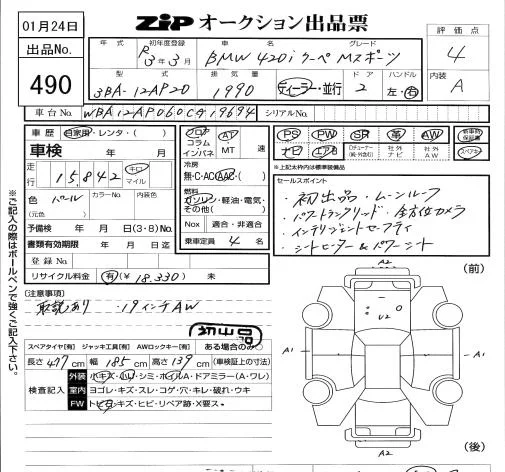 01月24日
ZiP オークション出品票
出品No.
490
年 式 初年度登録 車 名 グレード
R 3年3月 BMW 420i クーペ Mスポーツ
型 式 排 気 量 ドア ハンドル
3BA-12AP20 1990 ディーラー・並行 2 左・右
評 価 点
4
内装
A
車台No. WBA12AP060CG19694 シリアルNo.
車 歴 自家用・レンタ・( )
車検 年 月
走行 15,842 キロ マイル
色 パール カラーNo. 内装色
(元色 )
予備検 年 月 日(3・8)No.
書類有効期限 年 月 日迄
登録No.
リサイクル料金 有(¥18.330) 未
フロア コラム インパネ AT MT 速
冷房
無・C・AC・AAC・( )
燃料
ガソリン・軽油・電気・その他( )
Nox 適合・非適合
乗車定員 4 名
PS PW SR 革 AW 新車時保証書
ナビ エアB Dチューナー(純・外含む) 社外ナビ 社外AW スペアキー
↑上記太枠内は標準装備品
セールスポイント
・初出品・ムーンルーフ
・パワートランクリッド・全方位カメラ
・インテリジェントセーフティ
・シートヒーター&パワーシート
※ご記入の際はボールペンで強くご記入下さい。
(注意事項)
取説あり ・19インチAW
初出品
スペアタイヤ[有] ジャッキ工具[有] AWロックキー[有] ある場合のみ○
長さ 477 cm 幅 185 cm 高さ 139 cm (車検証上の寸法)
検査記入
外装 小キズ・凹・シミ・ホイルA・ドアミラー(A・ワレ)
室内 ヨゴレ・キズ・スレ・コゲ・穴・キレ・破れ・ウキ
FW トビ石・キズ・ヒビ・リペア跡・X要ス・
(前)
A2
U2
A1
A1
A2
(後)